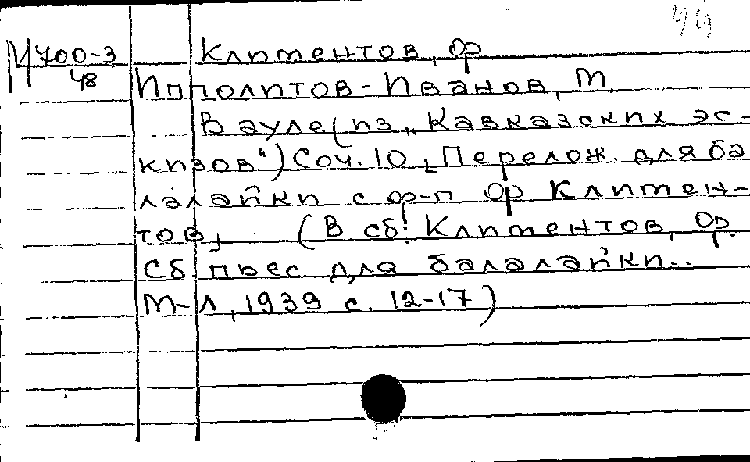 44
М 700-3 Климентов, Ф
48
Ипполитов-Иванов, М.
В ауле (из „Кавказских эс-
кизов") Соч. 10, Перелож. для ба
лалайки с ф-п Ф Климен-
тов, (В сб: Климентов, Ф.
Сб пьес для балалайки..
М-Л, 1939 с. 12-17)